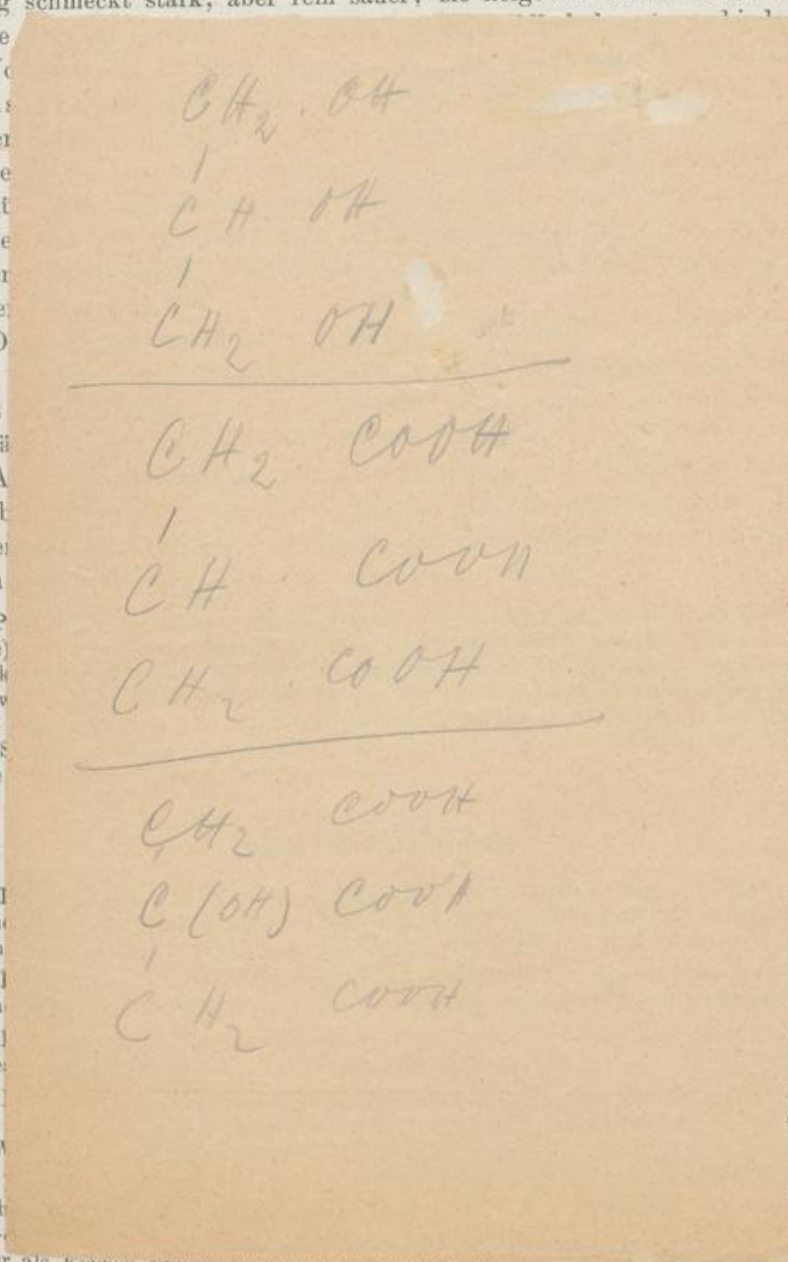 g schmeckt stark, aber rein sauer;
CH2 . OH
|
CH OH
|
CH2 OH
CH2 COOH
|
CH . COOH
CH2 . COOH
CH2 COOH
|
C (OH) COOH
|
CH2 COOH